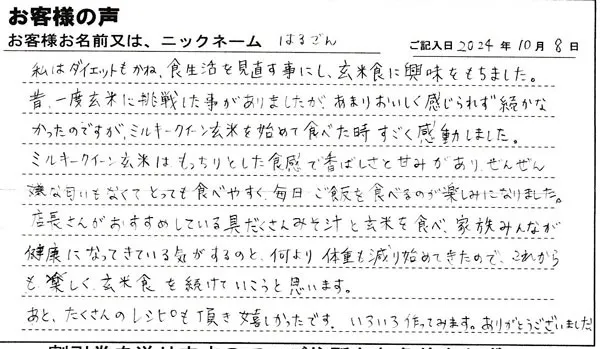 お客様の声
お客様お名前又は、ニックネーム はるどん ご記入日 2024 年 10 月 8 日
私はダイエットもかね、食生活を見直す事にし、玄米食に興味をもちました。
昔、一度玄米に挑戦した事がありましたが、あまりおいしく感じられず続かな
かったのですが、ミルキークイーン玄米を始めて食べた時すごく感動しました。
ミルキークイーン玄米はもっちりとした食感で香ばしさと甘みがあり、ぜんぜん
嫌な匂いもなくてとっても食べやすく、毎日、ご飯を食べるのが楽しみになりました。
店長さんがおすすめしている具だくさんみそ汁と玄米を食べ、家族みんなが
健康になってきている気がするのと、何より体重も減り始めてきたので、これから
も楽しく、玄米食を続けていこうと思います。
あと、たくさんのレシピも頂き嬉しかったです。いろいろ作ってみます。ありがとうございました